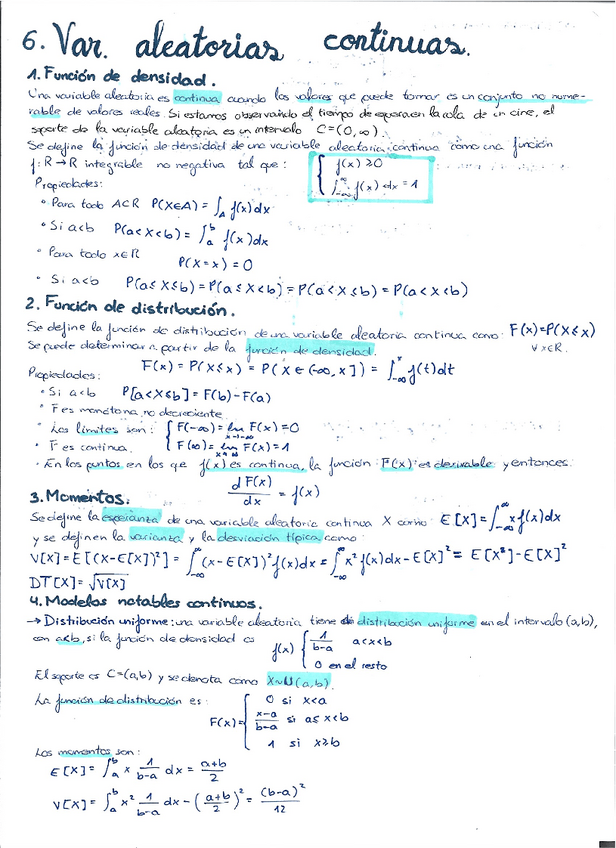 6. Var. aleatorias continuas.
1. Función de densidad.
Una variable aleatoria es continua cuando los valores que puede tomar es un conjunto no nume-
rable de valores reales. Si estamos observando el tiempo de espera en la cola de un cine, el
soporte de la variable aleatoria es un intervalo C=(0,∞).
Se define la función de densidad de una variable aleatoria continua como una función
f: R→R integrable no negativa tal que: { f(x) ≥ 0
∫_{-∞}^{∞} f(x) dx = 1
Propiedades:
• Para todo A⊂R P(X∈A) = ∫_A f(x) dx
• Si a<b P(a<X<b) = ∫_a^b f(x) dx
• Para todo x∈R P(X=x) = 0
• Si a<b P(a≤X≤b) = P(a≤X<b) = P(a<X≤b) = P(a<X<b)
2. Función de distribución.
Se define la función de distribución de una variable aleatoria continua como: F(x)=P(X≤x)
Se puede determinar a partir de la función de densidad. ∀x∈R.
F(x) = P(X≤x) = P(X∈(-∞,x]) = ∫_{-∞}^x f(t)dt
Propiedades:
• Si a<b P[a<X≤b] = F(b)-F(a)
• F es monótona no decreciente
• Los límites son: { F(-∞) = lim_{x→-∞} F(x) = 0
• F es continua. F(∞) = lim_{x→∞} F(x) = 1
• En los puntos en los que f(x) es continua, la función F(x) es derivable y entonces:
dF(x)/dx = f(x)
3. Momentos.
Se define la esperanza de una variable aleatoria continua X como: E[X] = ∫_{-∞}^{∞} x f(x) dx
y se definen la varianza y la desviación típica como:
V[X] = E[(X-E[X])²] = ∫_{-∞}^{∞} (x-E[X])² f(x) dx = ∫_{-∞}^{∞} x² f(x) dx - E[X]² = E[X²] - E[X]²
DT[X] = √V[X]
4. Modelos notables continuos.
→ Distribución uniforme: una variable aleatoria tiene distribución uniforme en el intervalo (a,b),
con a<b, si la función de densidad es f(x) { 1/(b-a) a<x<b
0 en el resto
El soporte es C=(a,b) y se denota como X~U(a,b).
La función de distribución es: 0 si x<a
F(x) = { (x-a)/(b-a) si a≤x<b
1 si x≥b
Los momentos son:
E[X] = ∫_a^b x 1/(b-a) dx = (a+b)/2
V[X] = ∫_a^b x² 1/(b-a) dx - ((a+b)/2)² = (b-a)²/12